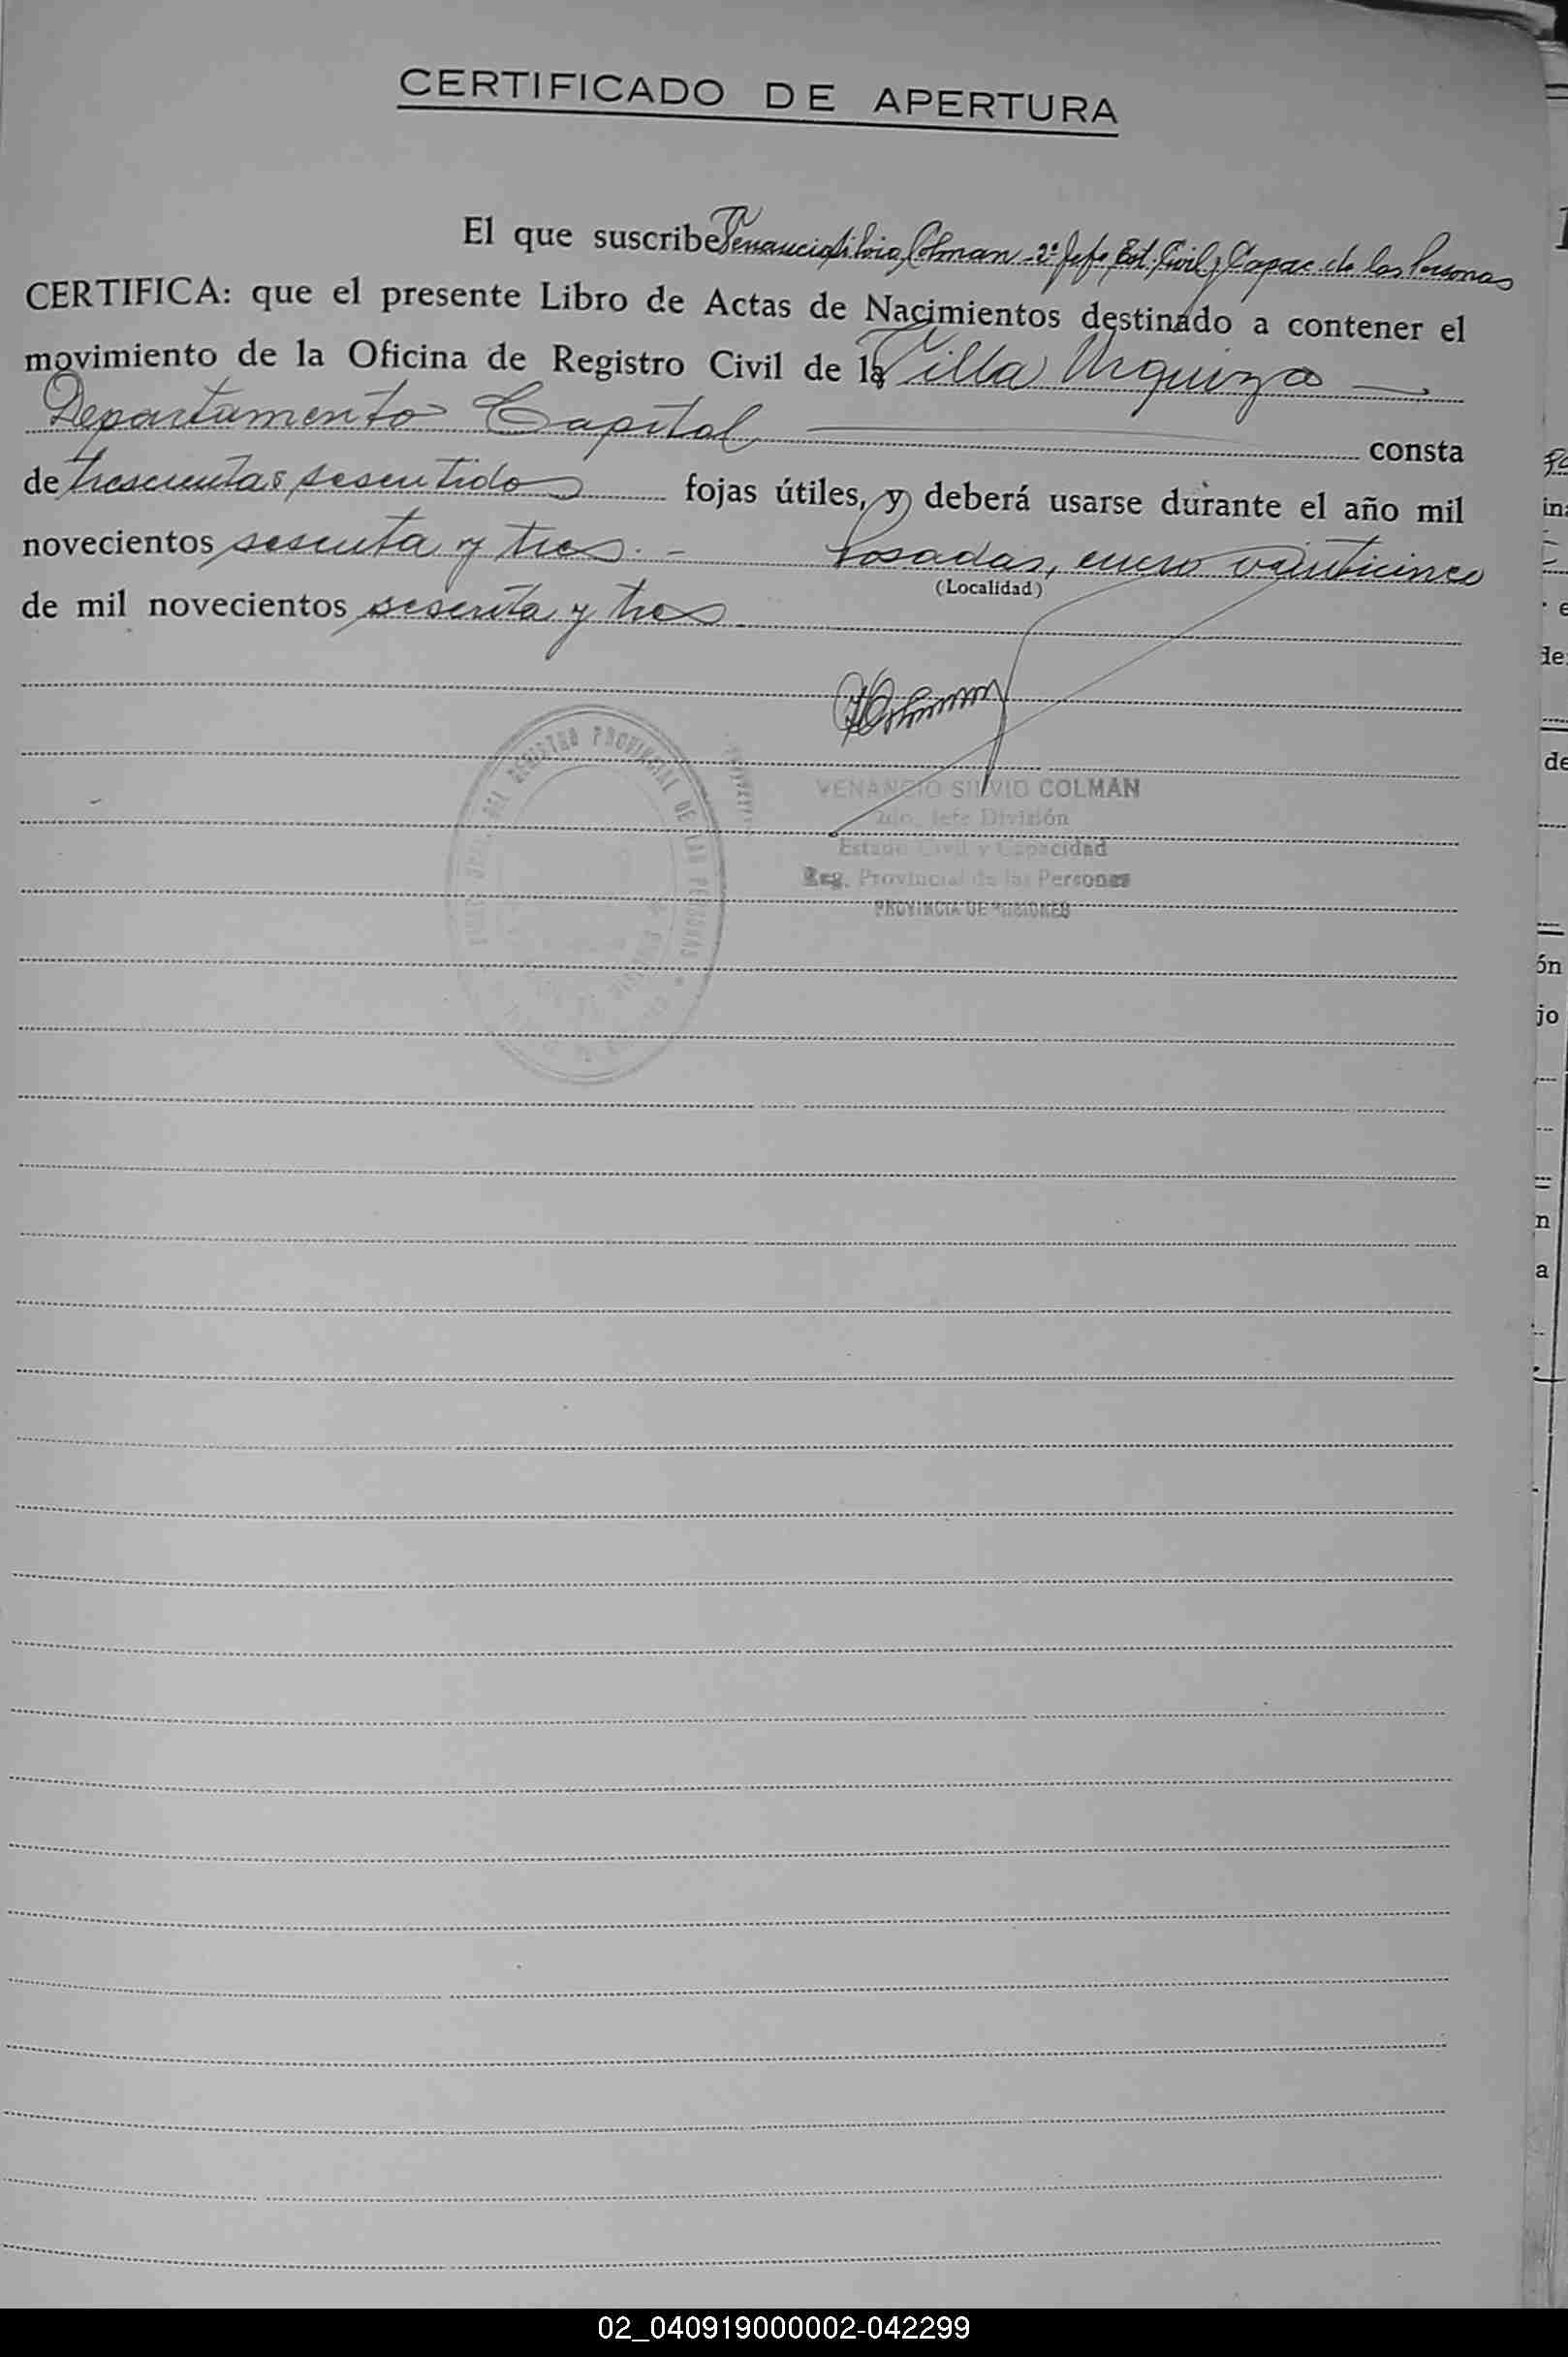 CERTIFICADO DE APERTURA
El que suscribe Venancio Silvio Colman - 2º Jefe Est. Civil y Capac de las Personas
CERTIFICA: que el presente Libro de Actas de Nacimientos destinado a contener el
movimiento de la Oficina de Registro Civil de la Villa Urquiza
Departamento Capital consta
de trescientas sesentidos fojas útiles, y deberá usarse durante el año mil
novecientos sesenta y tres. - Posadas, enero veinticinco
(Localidad)
de mil novecientos sesenta y tres
VENANCIO SILVIO COLMAN
2do. Jefe División
Estado Civil y Capacidad
Reg. Provincial de las Personas
PROVINCIA DE MISIONES
DEL REGISTRO PROVINCIAL DE LAS PERSONAS
02_040919000002-042299